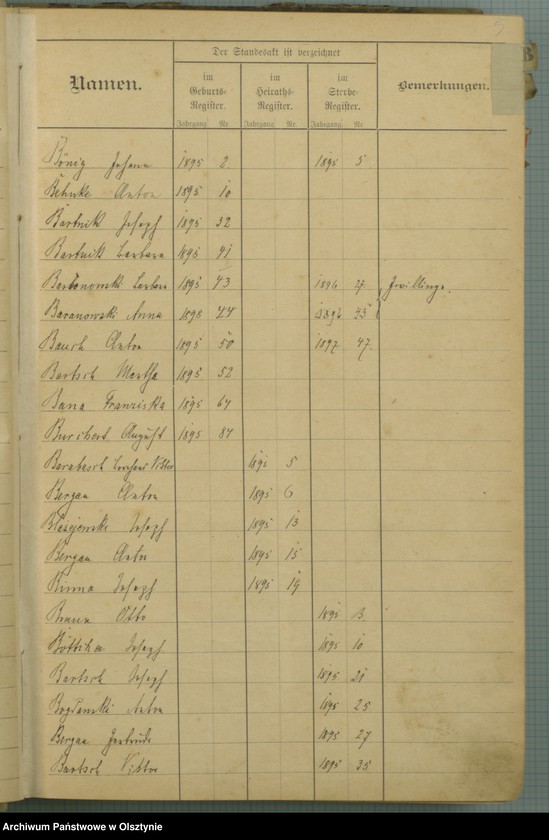 5
B
Der Standesakt ist verzeichnet
Namen.
im Geburts-Register.
im Heiraths-Register.
im Sterbe-Register.
Bemerkungen.
Jahrgang Nr. Jahrgang Nr. Jahrgang Nr.
Bönig Johann 1895 2 1895 5
Behnke Anton 1895 10
Bartnik Joseph 1895 32
Bartnik Barbara 1895 41
Barbara 1895 43 1896 27 Zwillinge.
Baranowski Anna 1895 44
Bausk Anton 1895 50 1897 47
Bartsch Martha 1895 52
Bana Franziska 1895 64
Burchert August 1895 84
Viktor 5
Bergau Anton 1895 6
Joseph 1895 13
Bergau Anton 1895 15
Binna Joseph 1895 19
Braun Otto 1895
Böttcher Joseph 1895 10
Bartsch Joseph 1895 21
Bogdanski Anton 1895 25
Bergau Gertrude 1895 27
Bartsch Viktor 1895 35
Archiwum Państwowe w Olsztynie